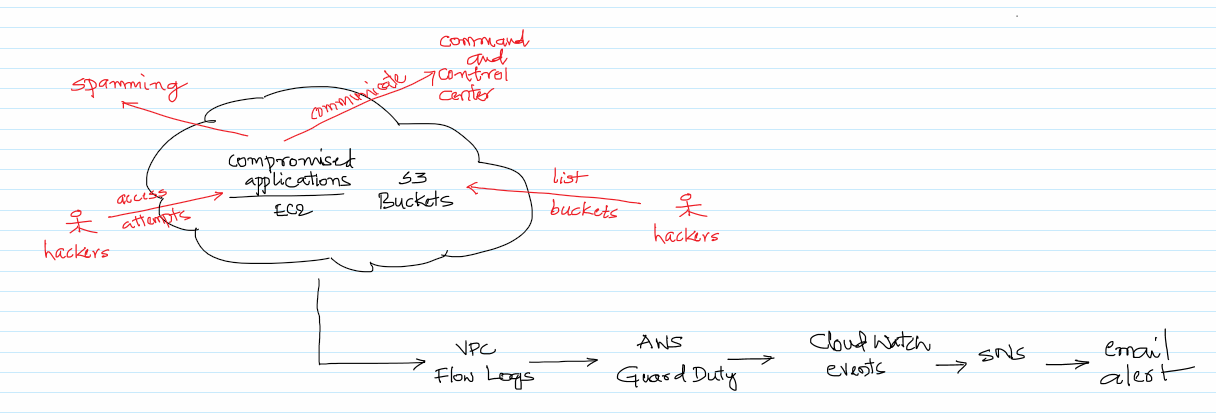 command
and
control
center
spamming
communicate
compromised
applications
EC2
S3
Buckets
access
attempts
hackers
list
buckets
hackers
VPC
Flow Logs
AWS
Guard Duty
Cloud Watch
events
SNS
email
alert